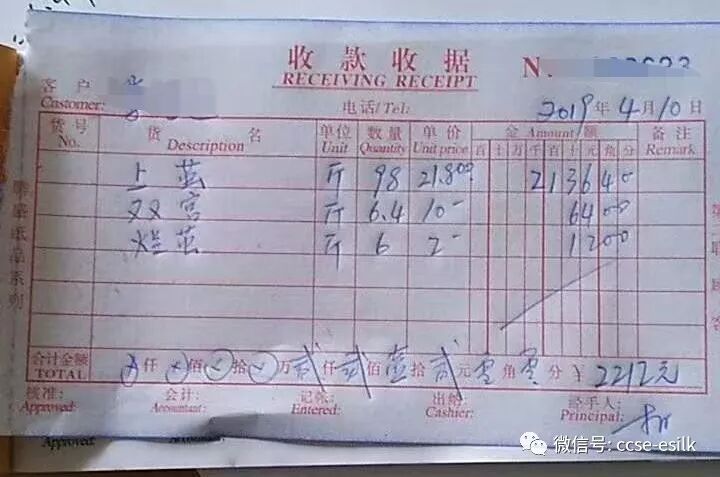 收款收据
RECEIVING RECEIPT
N
客户
Customer:
电话/Tel:
2019年4月10日
货号 货名 单位 数量 单价 金额 备注
No. Description Unit Quantity Unit price Amount Remark
百十万千百十元角分
上茧 斤 98 21.800 2136 40
双宫 斤 6.4 10- 64 00
烂茧 斤 6 2- 12 00
合计金额 仟 佰 拾 万 贰仟 贰佰 壹拾 贰元 零角 零分 ¥ 2212元
TOTAL
核准: 会计: 记帐: 出纳 经手人:
Approved: Accountant: Entered: Cashier: Principal:
Approved
微信号: ccse-esilk